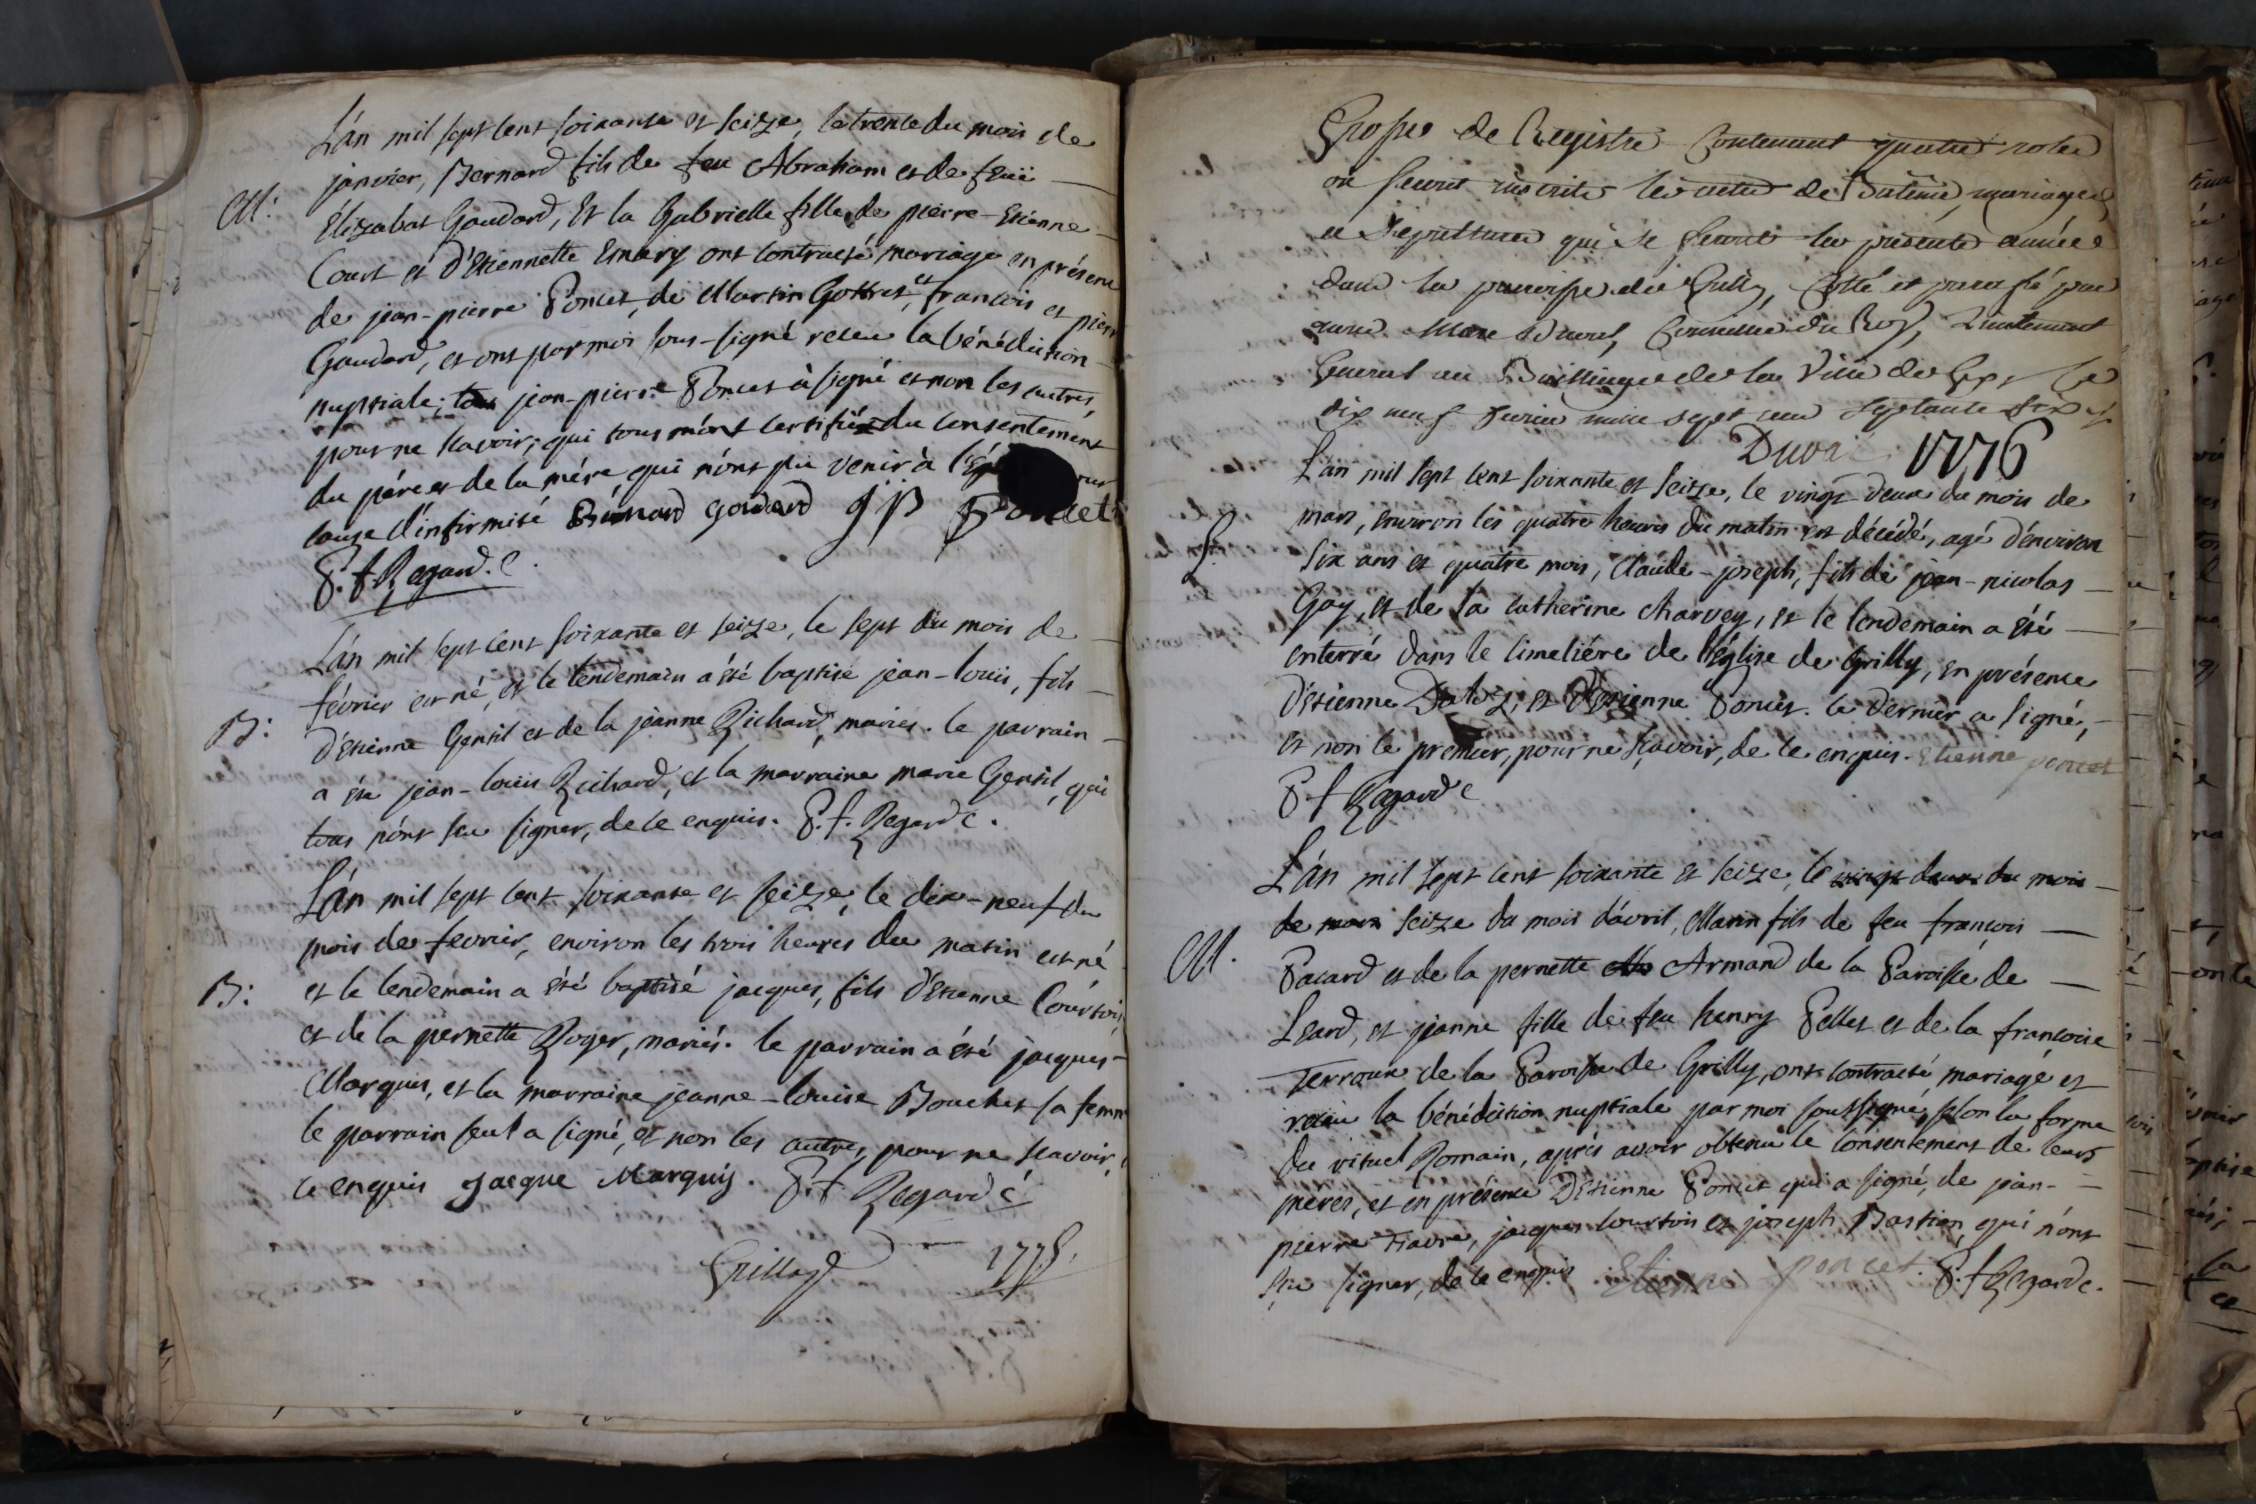 L'án mil sept cent soixante et seize, le trente du mois de
janvier, Bernard fils de feu Abraham et de feuë
M:
Elizabat Gaudard, et la Gabrielle fille de pierre-Etienne
Court et d'Etiennette Emery ont contracté mariage en présence
de jean-pierre Poncet, de Martin Gottret, et françois et pierre
Gaudard, et ont par moi sous-signé receu la bénédiction
nuptiale; jean-pierre Poncet à signé et non les autres,
pour ne scavoir; qui tous m'ont certifié du consentement
du pére et de la mére qui n'ont pu venir à
cause d'infirmité Bernard Godard J P Poncet
P. f. Regard. C.
L'án mil sept cent soixante et seize, le sept du mois de
février est né, et le lendemain a été baptisé jean-louis, fils
B:
d'Etienne Gentil et de la jeanne Richard, mariés. le parrain
a été jean-louis Richard, et la marraine marie Gentil, qui
tous n'ont sceu signer, de ce enquis. P. f. Regard C.
L'án mil sept cent soixante et seize, le dix-neuf du
mois de fevrier, environ les trois heures du matin est né
B:
et le lendemain a été baptisé jacques, fils d'Etienne Courtois
et de la pernette Roger, mariés. le parrain a été jacques-
Marquis, et la marraine jeanne-louise Bouchet sa femme
le parrain seul a signé, et non les autres, pour ne scavoir,
ce enquis Jacque Marquis. P. f. Regard C.
Grilly 1775.
Registre Contenant quatre roles
ou seront inscrits les actes de Batême, mariages
et Sépultures qui se feront la présente année
dans la paroisse de Grilly, Cotté et paraphé par
nous Duval, Conseiller du Roy, Lieutenant
General au Bailliage de la Ville de Gex, le
dix neuf fevrier mille sept cent septante six
Duval 1776
L'án mil sept cent soixante et seize, le vingt deux du mois de
mars, environ les quatre heures du matin est décédé, agé d'environ
S.
six ans et quatre mois, Claude-joseph, fils de jean-nicolas
Gay, et de la catherine Charvey, et le lendemain a été
enterré dans le cimetiére de l'église de Grilly, en présence
d'Etienne et d'Etienne Poncet. le dernier a signé,
et non le premier, pour ne sçavoir, de ce enquis. Etienne poncet
P f Regard C
L'án mil sept cent soixante et seize, le vingt deux du mois
de mars seize du mois d'avril, Marin fils de feu françois
M.
Pacard et de la pernette Armand de la Paroisse de
Leard, et jeanne fille de feu henry Pellet et de la francoise
Terroux de la Paroisse de Grilly, ont contracté mariage et
receu la bénédiction nuptiale par moi soussigné, selon la forme
du rituel Romain, aprés avoir obtenu le consentement de leurs
meres, et en présence d'Etienne Poncet qui a signé, de jean-
pierre Favre, jacques Courtois et joseph Bastian, qui n'ont
sceu signer, de ce enquis Etienne poncet P. f Regard C.